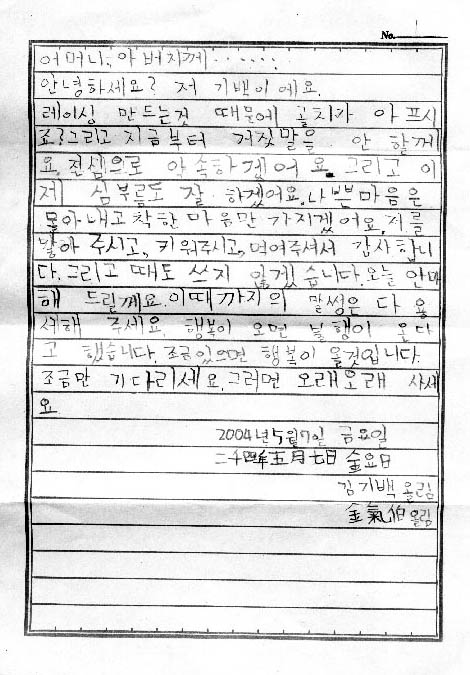 No. 1
어머니, 아버지께 · · · · · ·
안녕하세요? 저 기백이에요.
레이싱 만드는것 때문에 골치가 아프시
죠? 그리고 지금부터 거짓말을 안 할께
요. 진심으로 약속하겠어요. 그리고 이
제 심부름도 잘 하겠어요. 나쁜마음은
몰아내고 착한 마음만 가지겠어요. 저를
낳아 주시고, 키워주시고, 먹여주셔서 감사합니
다. 그리고 때도 쓰지 않겠습니다. 오늘 안마
해 드릴께요. 이때까지의 말썽은 다 용
서해 주세요. 행복이 오면 불행이 온다
고 했습니다. 조금있으면 행복이 올것입니다.
조금만 기다리세요. 그러면 오래오래 사세
요
2004년 5월 7일 금요일
二千四年 五月 七日 金요日
김기백 올림
金氣伯 올림